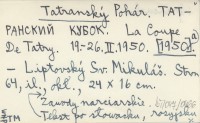 Tatranský Pohár. ТАТ-
РАНСКИЙ КУБОК. La Coupe
De Tatry. 19-26.II.1950. [1950]
- Liptovský Sv. Mikuláš. Stron
64, il., okł., 24 x 16 cm.
Zawody narciarskie.
Tekst po słowacku, rosyjsku
TM